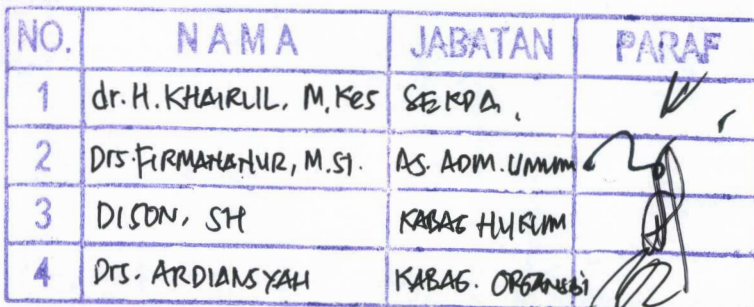 NO. NAMA JABATAN PARAF
1 dr. H. KHAIRLIL, M.Kes SEKDA.
2 Drs. FIRMANANUR, M.Si. AS. ADM. UMUM
3 DISON, SH KABAG HUKUM
4 Drs. ARDIANSYAH KABAG. ORGANISASI